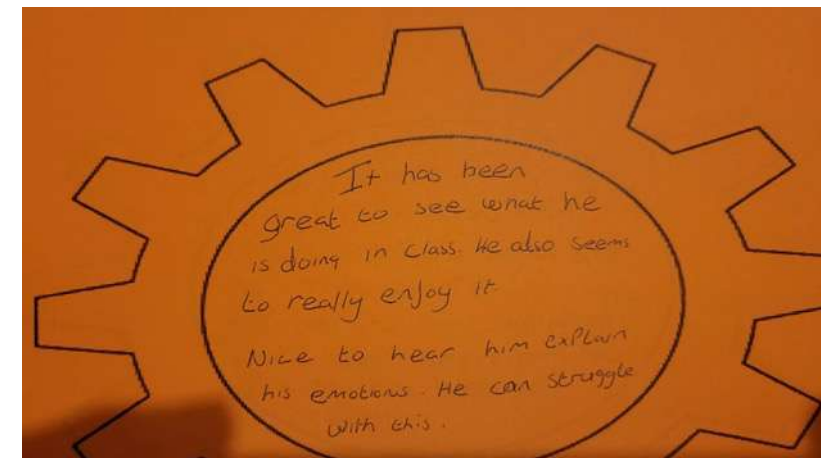 It has been
great to see what he
is doing in class. He also seems
to really enjoy it
Nice to hear him explain
his emotions. He can struggle
with this.